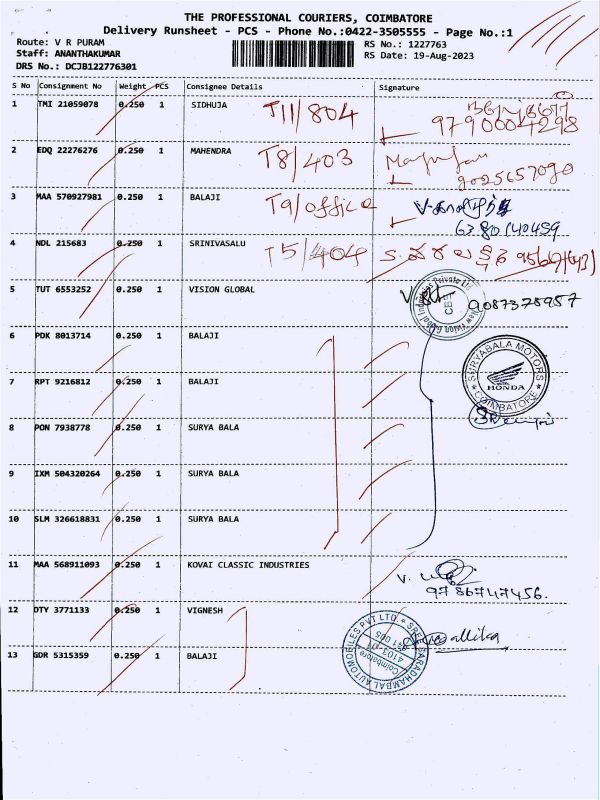 THE PROFESSIONAL COURIERS, COIMBATORE
Delivery Runsheet - PCS - Phone No.:0422-3505555 - Page No.:1
Route: V R PURAM RS No.: 1227763
Staff: ANANTHAKUMAR RS Date: 19-Aug-2023
DRS No.: DCJB122776301
S No Consignment No Weight PCS Consignee Details Signature
1 TMI 21059078 0.250 1 SIDHUJA T11/804
9790004298
2 EDQ 22276276 0.250 1 MAHENDRA T8/403
9025657090
3 MAA 570927981 0.250 1 BALAJI T9/office
6380140459
4 NDL 215683 0.250 1 SRINIVASALU T5/404
5 TUT 6553252 1 VISION GLOBAL 9087378957
New Vision Global Industries Private Ltd CBE
6 PDK 8013714 0.250 1 BALAJI
7 RPT 9216812 0.250 1 BALAJI
SURYABALA MOTORS
HONDA
COIMBATORE
8 PON 7938778 0.250 1 SURYA BALA
9 IXM 504320264 0.250 1 SURYA BALA
10 SLM 326618831 0.250 1 SURYA BALA
11 MAA 568911093 0.250 1 KOVAI CLASSIC INDUSTRIES
9786747456.
12 DTY 3771133 0.250 1 VIGNESH
SREE SARADHAMBAL AUTOMOBILES PVT LTD
Coimbatore
13 GDR 5315359 0.250 1 BALAJI